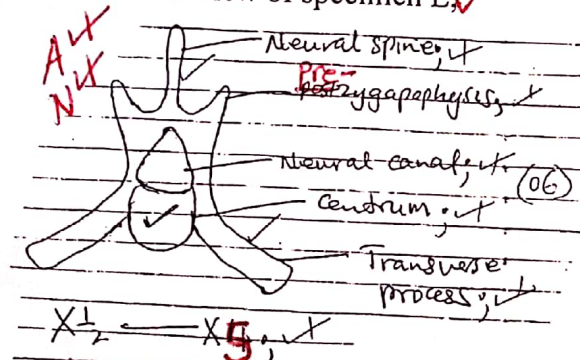 of specimen E,
A
N
Neural spine;
Pre-
zygapophysis,
Neural canal;
06
Centrum;
Transverse
process;
X½ — X5;